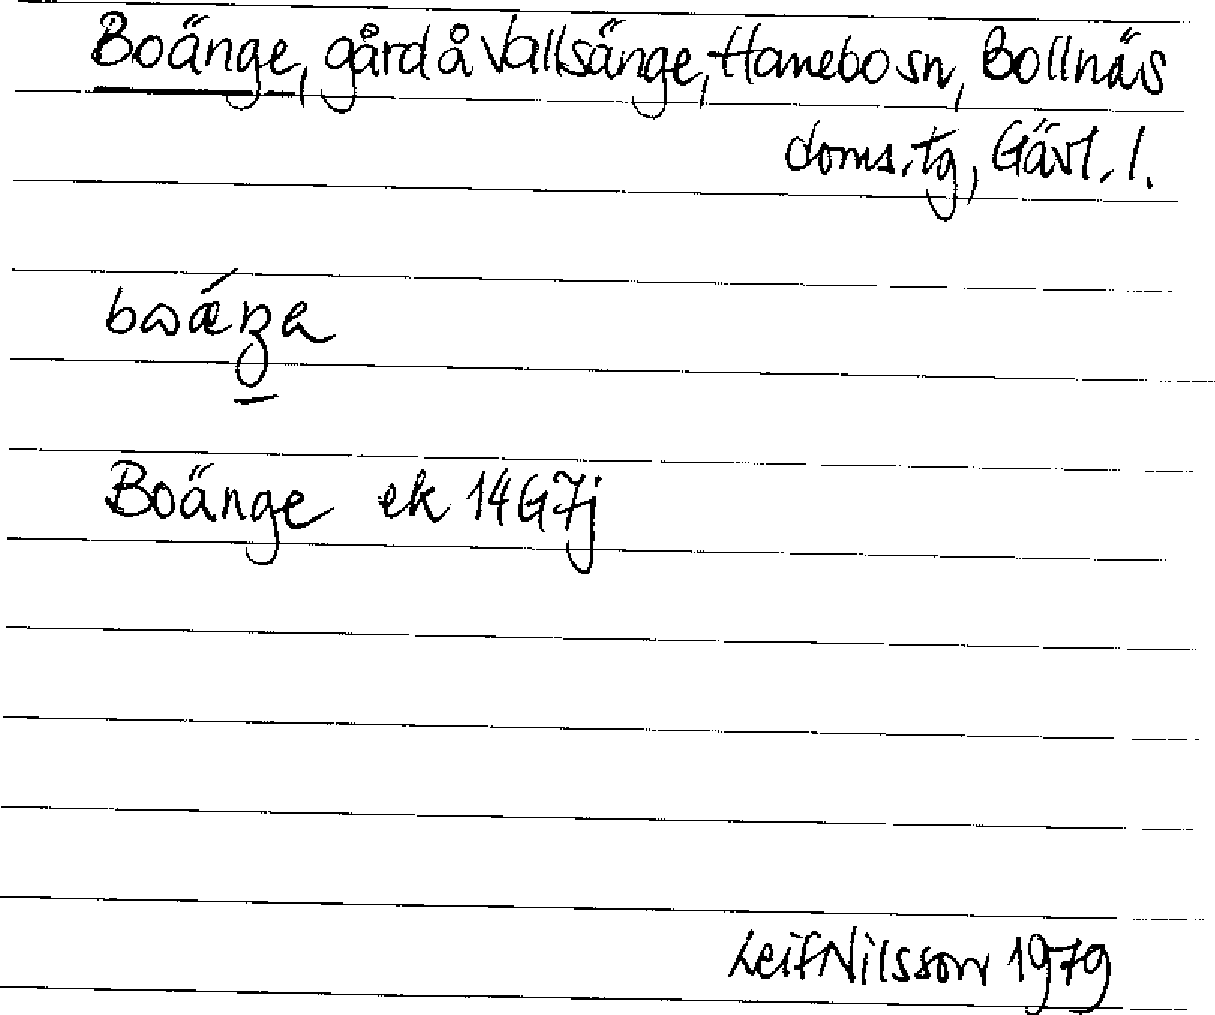 Boänge, gård å Vallsänge, Hanebo sn, Bollnäs
doms. tg, Gävl. l.
Boänge ek 14G7j
Leif Nilsson 1979